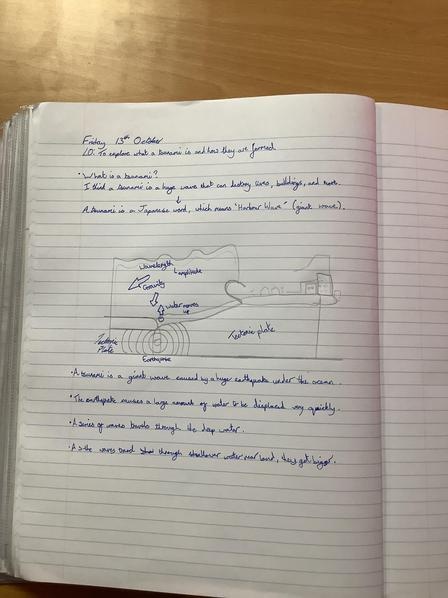 Friday 13th October
LO: To explore what a tsunami is and how they are formed.
• What is a tsunami?
I think a tsunami is a huge wave that can destroy lives, buildings, and more.
A tsunami is a Japanese word, which means 'Harbour Wave' (giant wave).
Wavelength
amplitude
Gravity
Water moves
up
Tectonic
Plate
Tectonic plate
Earthquake
• A tsunami is a giant wave caused by a huge earthquake under the ocean.
• The earthquake causes a large amount of water to be displaced very quickly.
• A series of waves travels through the deep water.
• As the waves travel through shallower water near land, they get bigger.